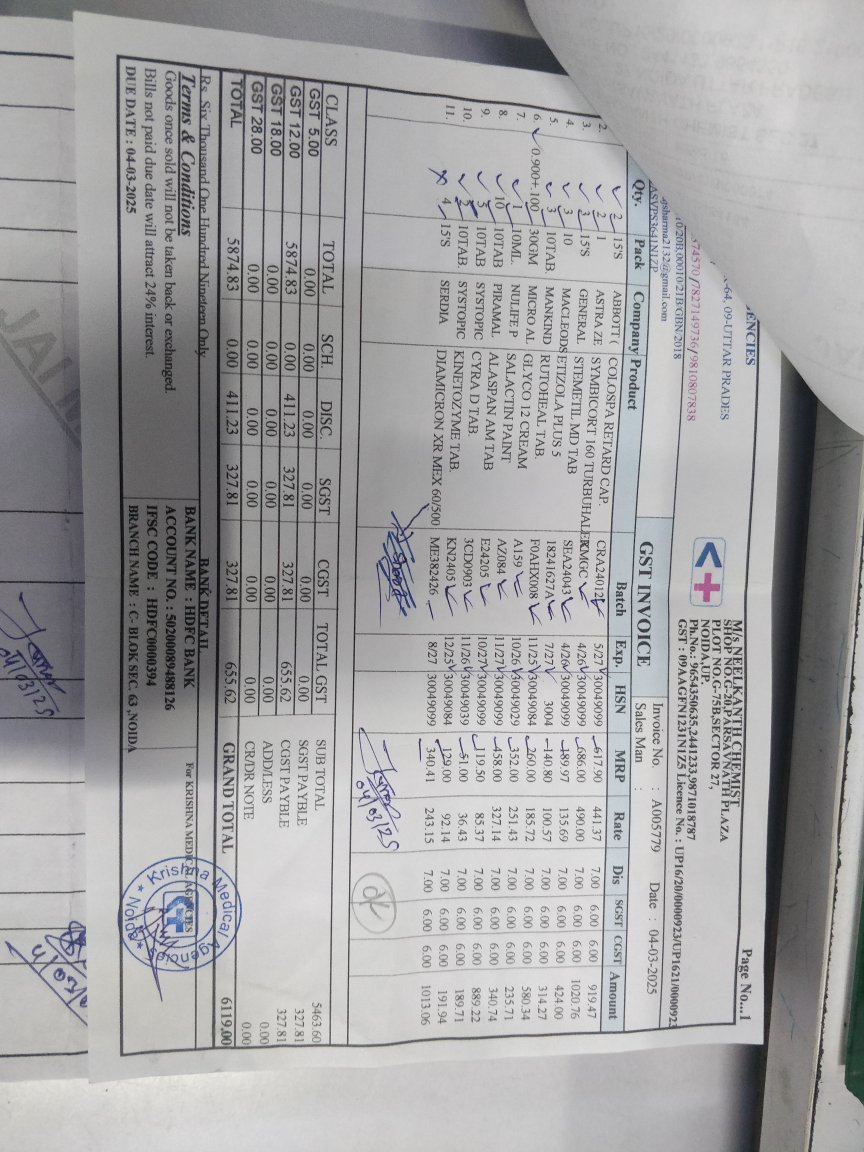 Page No....1
M/s NEELKANTH CHEMIST
SHOP NO.G-20,PARSAVNATH PLAZA
PLOT NO.G-75B,SECTOR 27,
NOIDA,UP.
Ph.No.: 9654350635,2441233,9871018787
GST : 09AAGFN1231N1Z5 Licence No. : UP16/20/0000923/UP1621/0000923
ENCIES
-64, 09-UTTAR PRADES
374570/7827149736/9810807838
10/20B.00010/21B/GBN/2018
gsharma2132@gmail.com
ASVPS3641N1ZP
GST INVOICE
Invoice No. : A005779 Date : 04-03-2025
Sales Man :
Qty. Pack Company Product Batch Exp. HSN MRP Rate Dis SGST CGST Amount
2 15'S ABBOTT ( COLOSPA RETARD CAP. CRA24012 5/27 30049099 617.90 441.37 7.00 6.00 6.00 919.47
2. 2 1 ASTRA ZE SYMBICORT 160 TURBUHALER KMGC 4/26 30049099 686.00 490.00 7.00 6.00 6.00 1020.76
3. 3 15'S GENERAL STEMETIL MD TAB SEA24043 4/26 30049099 189.97 135.69 7.00 6.00 6.00 424.00
4. 3 10 MACLEODS ETIZOLA PLUS 5 18241627A 7/27 3004 140.80 100.57 7.00 6.00 6.00 314.27
5. 3 10TAB. MANKIND RUTOHEAL TAB. F0AHX008 11/25 30049084 260.00 185.72 7.00 6.00 6.00 580.34
6. 0.900+.100 30GM MICRO AL GLYCO 12 CREAM A159 10/26 30049029 352.00 251.43 7.00 6.00 6.00 235.71
7. 1 10ML. NULIFE P SALACTIN PAINT AZ084 11/27 30049099 458.00 327.14 7.00 6.00 6.00 340.74
8. 10 10TAB PIRAMAL ALASPAN AM TAB E24205 10/27 30049099 119.50 85.37 7.00 6.00 6.00 889.22
9. 5 10TAB SYSTOPIC CYRA D TAB. 3CD0903 11/26 30049039 51.00 36.43 7.00 6.00 6.00 189.71
10. 2 10TAB. SYSTOPIC KINETOZYME TAB. KN2405 12/25 30049084 129.00 92.14 7.00 6.00 6.00 191.94
11. 4 15'S SERDIA DIAMICRON XR MEX 60/500 ME382426 8/27 30049099 340.41 243.15 7.00 6.00 6.00 1013.06
04/03/25
OK
CLASS TOTAL SCH. DISC. SGST CGST TOTAL GST
GST 5.00 0.00 0.00 0.00 0.00 0.00 0.00
GST 12.00 5874.83 0.00 411.23 327.81 327.81 655.62
GST 18.00 0.00 0.00 0.00 0.00 0.00 0.00
GST 28.00 0.00 0.00 0.00 0.00 0.00 0.00
TOTAL 5874.83 0.00 411.23 327.81 327.81 655.62
SUB TOTAL 5463.60
SGST PAYBLE 327.81
CGST PAYBLE 327.81
ADD/LESS 0.00
CR/DR NOTE 0.00
GRAND TOTAL 6119.00
Rs. Six Thousand One Hundred Nineteen Only
Terms & Conditions
Goods once sold will not be taken back or exchanged.
Bills not paid due date will attract 24% interest.
DUE DATE : 04-03-2025
BANK DETAIL
BANK NAME : HDFC BANK
ACCOUNT NO. : 50200089488126
IFSC CODE : HDFC0000394
BRANCH NAME : C- BLOK SEC. 63 ,NOIDA
For KRISHNA MEDICAL AGENCIES
Krishna Medical Agencies
Noida
04/03/25
4/03/2